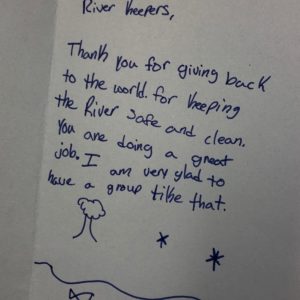 River Keepers,
Thank you for giving back
to the world. for keeping
the River safe and clean.
You are doing a great
job. I am very glad to
have a group like that.